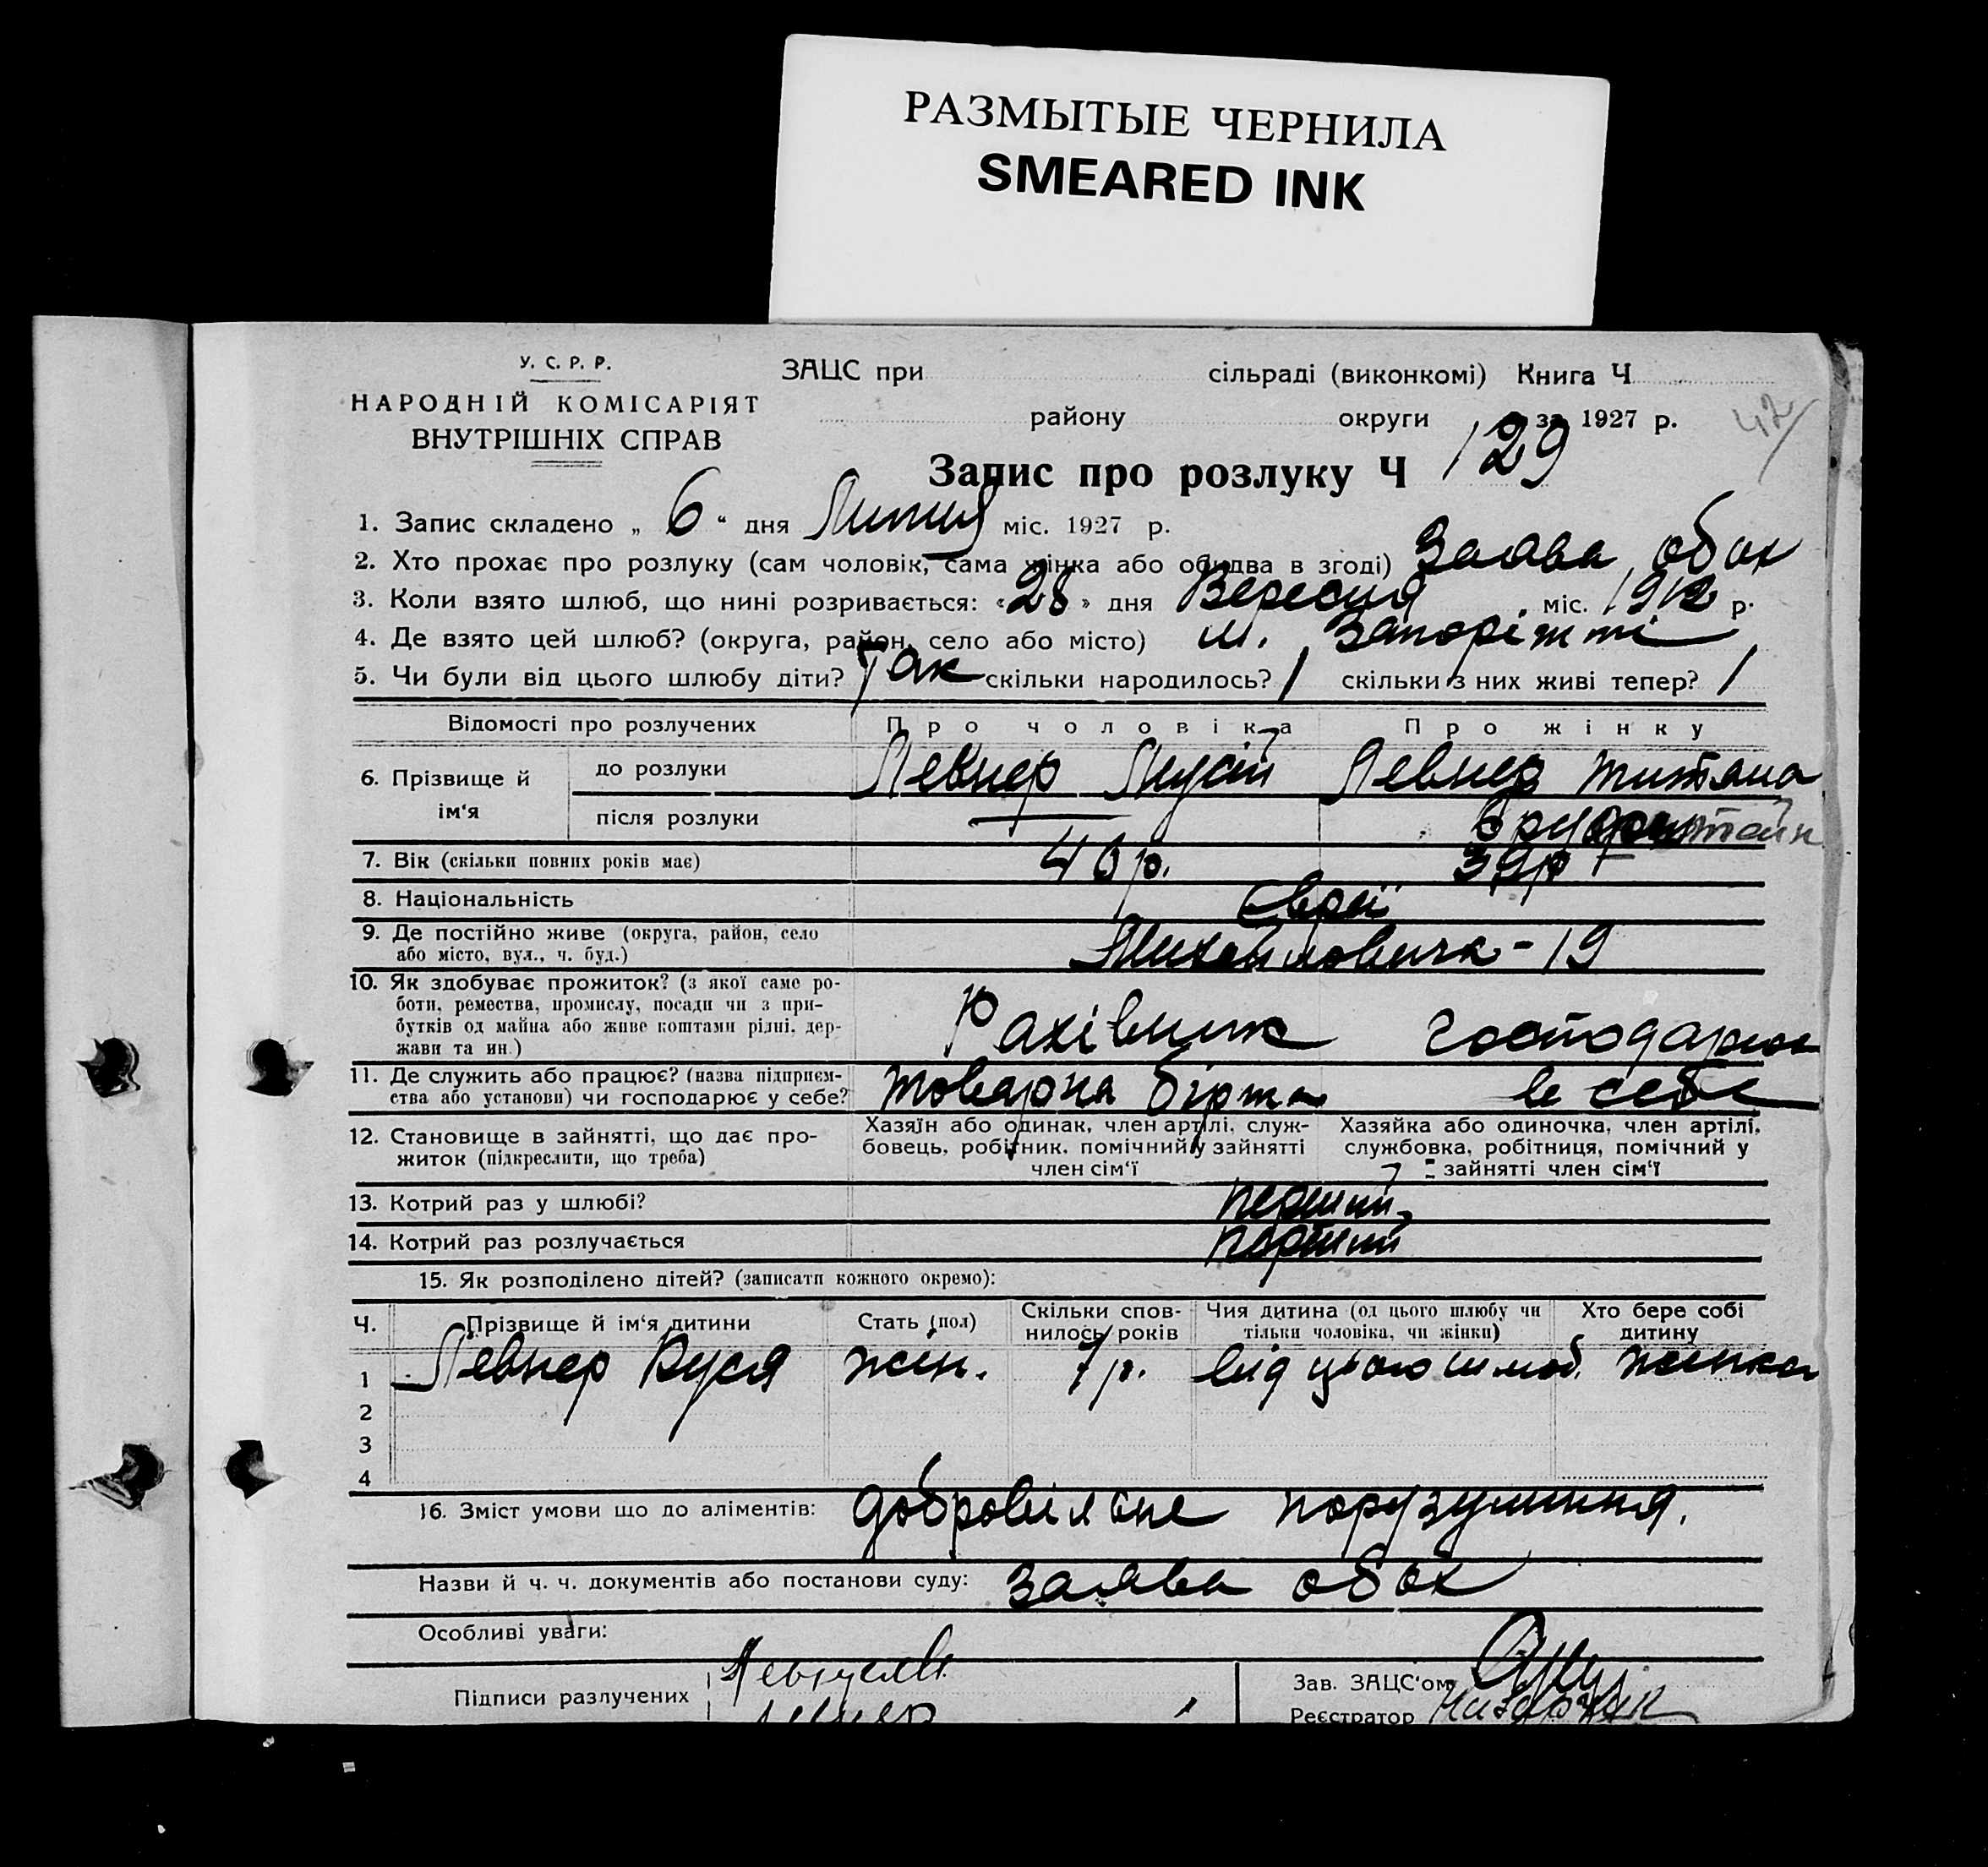 РАЗМЫТЫЕ ЧЕРНИЛА
SMEARED INK
У. С. Р. Р.
НАРОДНІЙ КОМІСАРІЯТ
ВНУТРІШНІХ СПРАВ
ЗАЦС при сільраді (виконкомі) Книга Ч
району округи за 1927 р.
42
Запис про розлуку Ч 129
1. Запис складено „ 6 “ дня Липня міс. 1927 р.
2. Хто прохає про розлуку (сам чоловік, сама жінка або обидва в згоді) Заява обох
3. Коли взято шлюб, що нині розривається: «28» дня Вересня міс. 1912 р.
4. Де взято цей шлюб? (округа, район, село або місто) м. Запоріжжі
5. Чи були від цього шлюбу діти? Так скільки народилось? 1 скільки з них живі тепер? 1
Відомості про розлучених Про чоловіка Про жінку
6. Прізвище й ім‘я
до розлуки Левнер Мусій Левнер
після розлуки —
7. Вік (скільки повних років має) 40 р. 39 р
8. Національність Євреї
9. Де постійно живе (округа, район, село
або місто, вул., ч. буд.) - 19
10. Як здобуває прожиток? (з якої саме ро-
боти, ремества, промислу, посади чи з при-
бутків од майна або живе коштами рідні, дер-
жави та ин.)
Рахівник
11. Де служить або працює? (назва підприєм-
ства або установи) чи господарює у себе?
Товарна біржа в себе
12. Становище в зайнятті, що дає про-
житок (підкреслити, що треба)
Хазяїн або одинак, член артілі, служ-
бовець, робітник, помічний у зайнятті
член сім‘ї
Хазяйка або одиночка, член артілі,
службовка, робітниця, помічний у
зайнятті член сім‘ї
13. Котрий раз у шлюбі? перший
14. Котрий раз розлучається перший
15. Як розподілено дітей? (записати кожного окремо):
Ч. Прізвище й ім‘я дитини Стать (пол) Скільки спов-
нилось років Чия дитина (од цього шлюбу чи
тільки чоловіка, чи жінки) Хто бере собі
дитину
1 Левнер Буся жін. 7 р. від цього шлюб. жінка
2
3
4
16. Зміст умови що до аліментів: добровільне порузуміння.
Назви й ч. ч. документів або постанови суду: заява обох
Особливі уваги:
Підписи разлучених
Левнер
Зав. ЗАЦС‘ом
Реєстратор